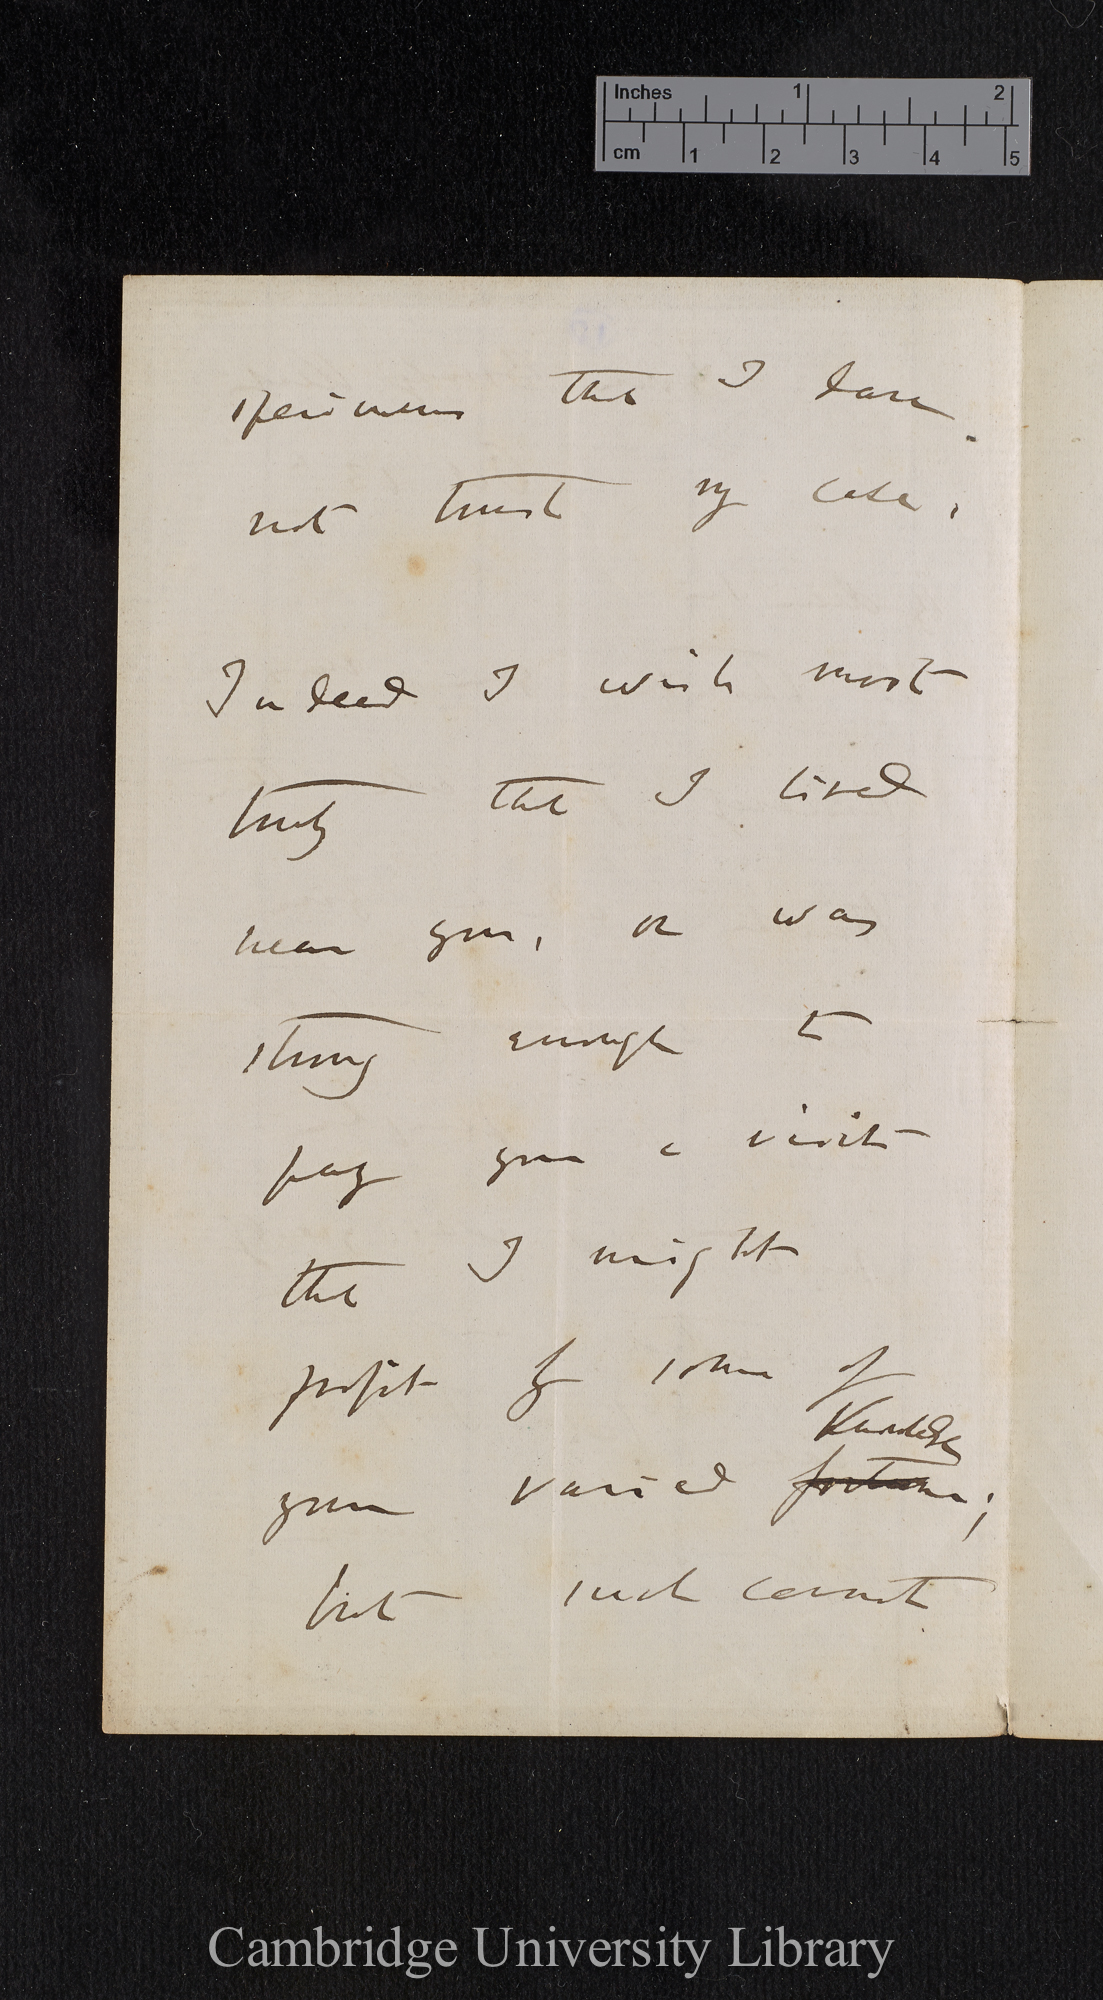 Inches 1 2
cm 1 2 3 4 5
specimens that I dare
not trust my case.
Indeed I wish most
truly that I lived
near you, or was
strong enough to
pay you a visit
that I might
profit by some of
Knowledge
your varied fortune;
but such cannot
Cambridge University Library